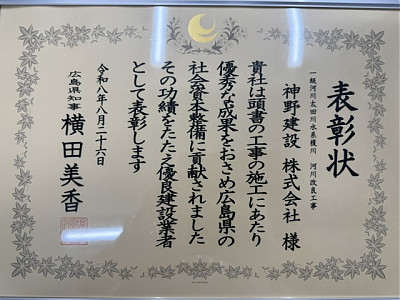 表彰状
一級河川太田川水系榎川 河川改良工事
神野建設 株式会社 様
貴社は頭書の工事の施工にあたり
優秀な成果をおさめ広島県の
社会資本整備に貢献されました
その功績をたたえ優良建設業者
として表彰します
令和八年八月二十六日
広島県知事 横田美香